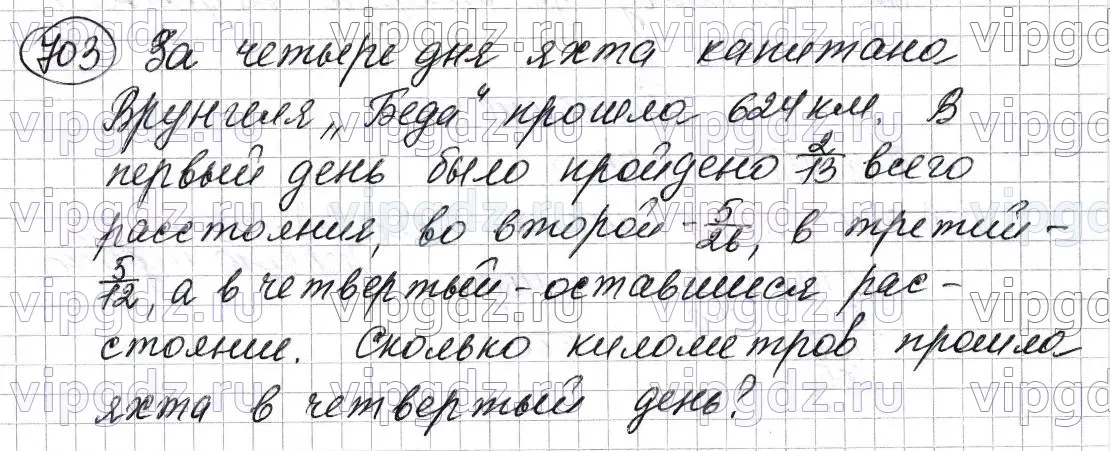 703 За четыре дня яхта капитана
Врунгеля „Беда" прошла 624 км. В
первый день было пройдено 2/13 всего
расстояния, во второй - 5/26, в третий -
5/12, а в четвертый - оставшиеся рас-
стояние. Сколько километров прошла
яхта в четвертый день?
vipgdz.ru